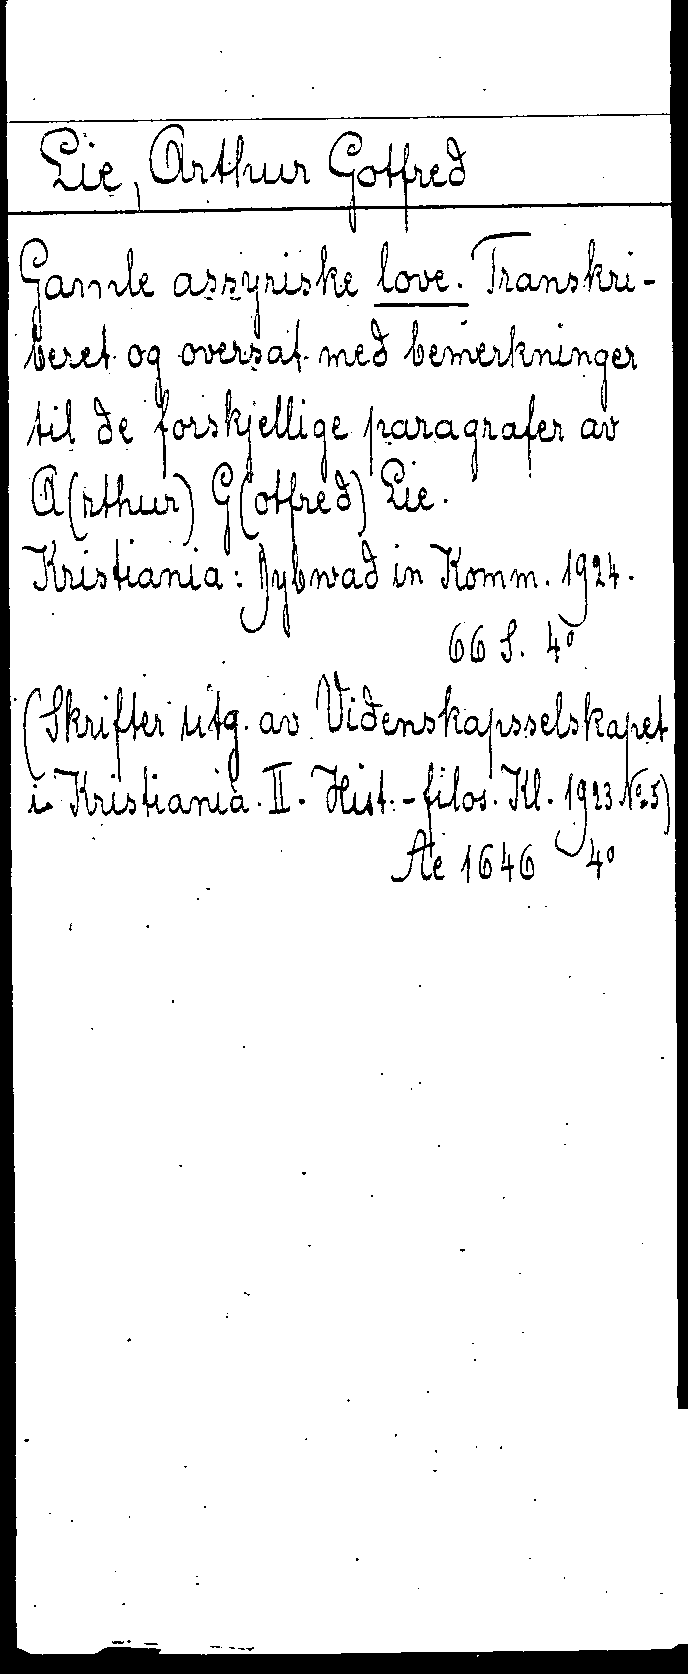 Lie, Arthur Gotfred
Gamle assyriske love. Transkri-
beret og oversat med bemerkninger
til de forskjellige paragrafer av
A(rthur) G(otfred) Lie.
Kristiania: Dybwad in Komm. 1924.
66 S. 4°
(Skrifter utg. av Videnskapsselskapet
i Kristiania. II. Hist.-filos. Kl. 1923 No. 5)
Ae 1646 4°